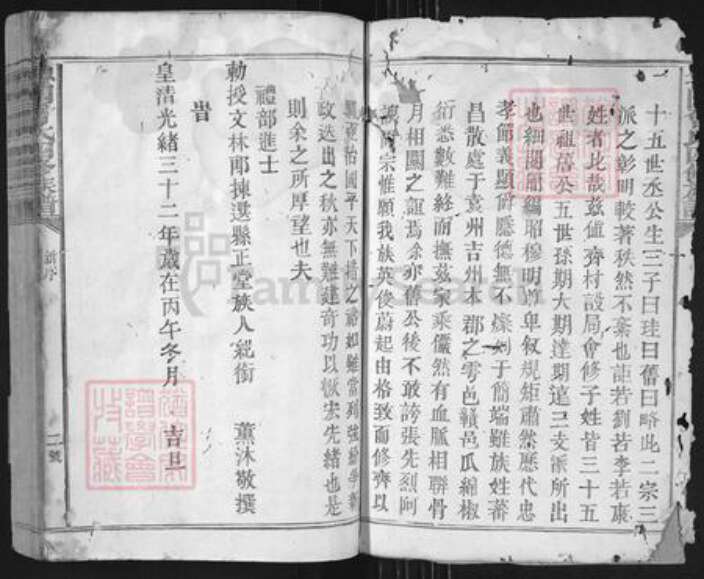 十五世丞公生三子曰珪曰舊曰略此二宗三
派之彰明較著秩然不紊也詎若劉若李若康
姓者比哉茲値齊村設局會修子姓皆三十五
世祖舊公五世孫期大期達期遠三支派所出
也細閱所編昭穆明尊卑敘規矩肅然歷代忠
孝節義顯爵隱德無不燦列于簡端雖族姓蕃
昌散處于袁州吉州本郡之雩邑贛邑瓜綿椒
衍悉數難終而撫茲家乘儼然有血脈相聯骨
月相關之誼焉余亦舊公後不敢誇張先烈阿
同宗惟願我族英俊蔚起由格致而修齊以
治國平天下
政迭出之秋亦無難建奇功以徽宏先緒也是
則余之所厚望也夫
禮部進士
勅授文林郎揀選縣正堂族人 銜 薰沐敬撰
旹
皇清光緒三十二年歲在丙午冬月 吉旦
新序
二號
FamilySearch